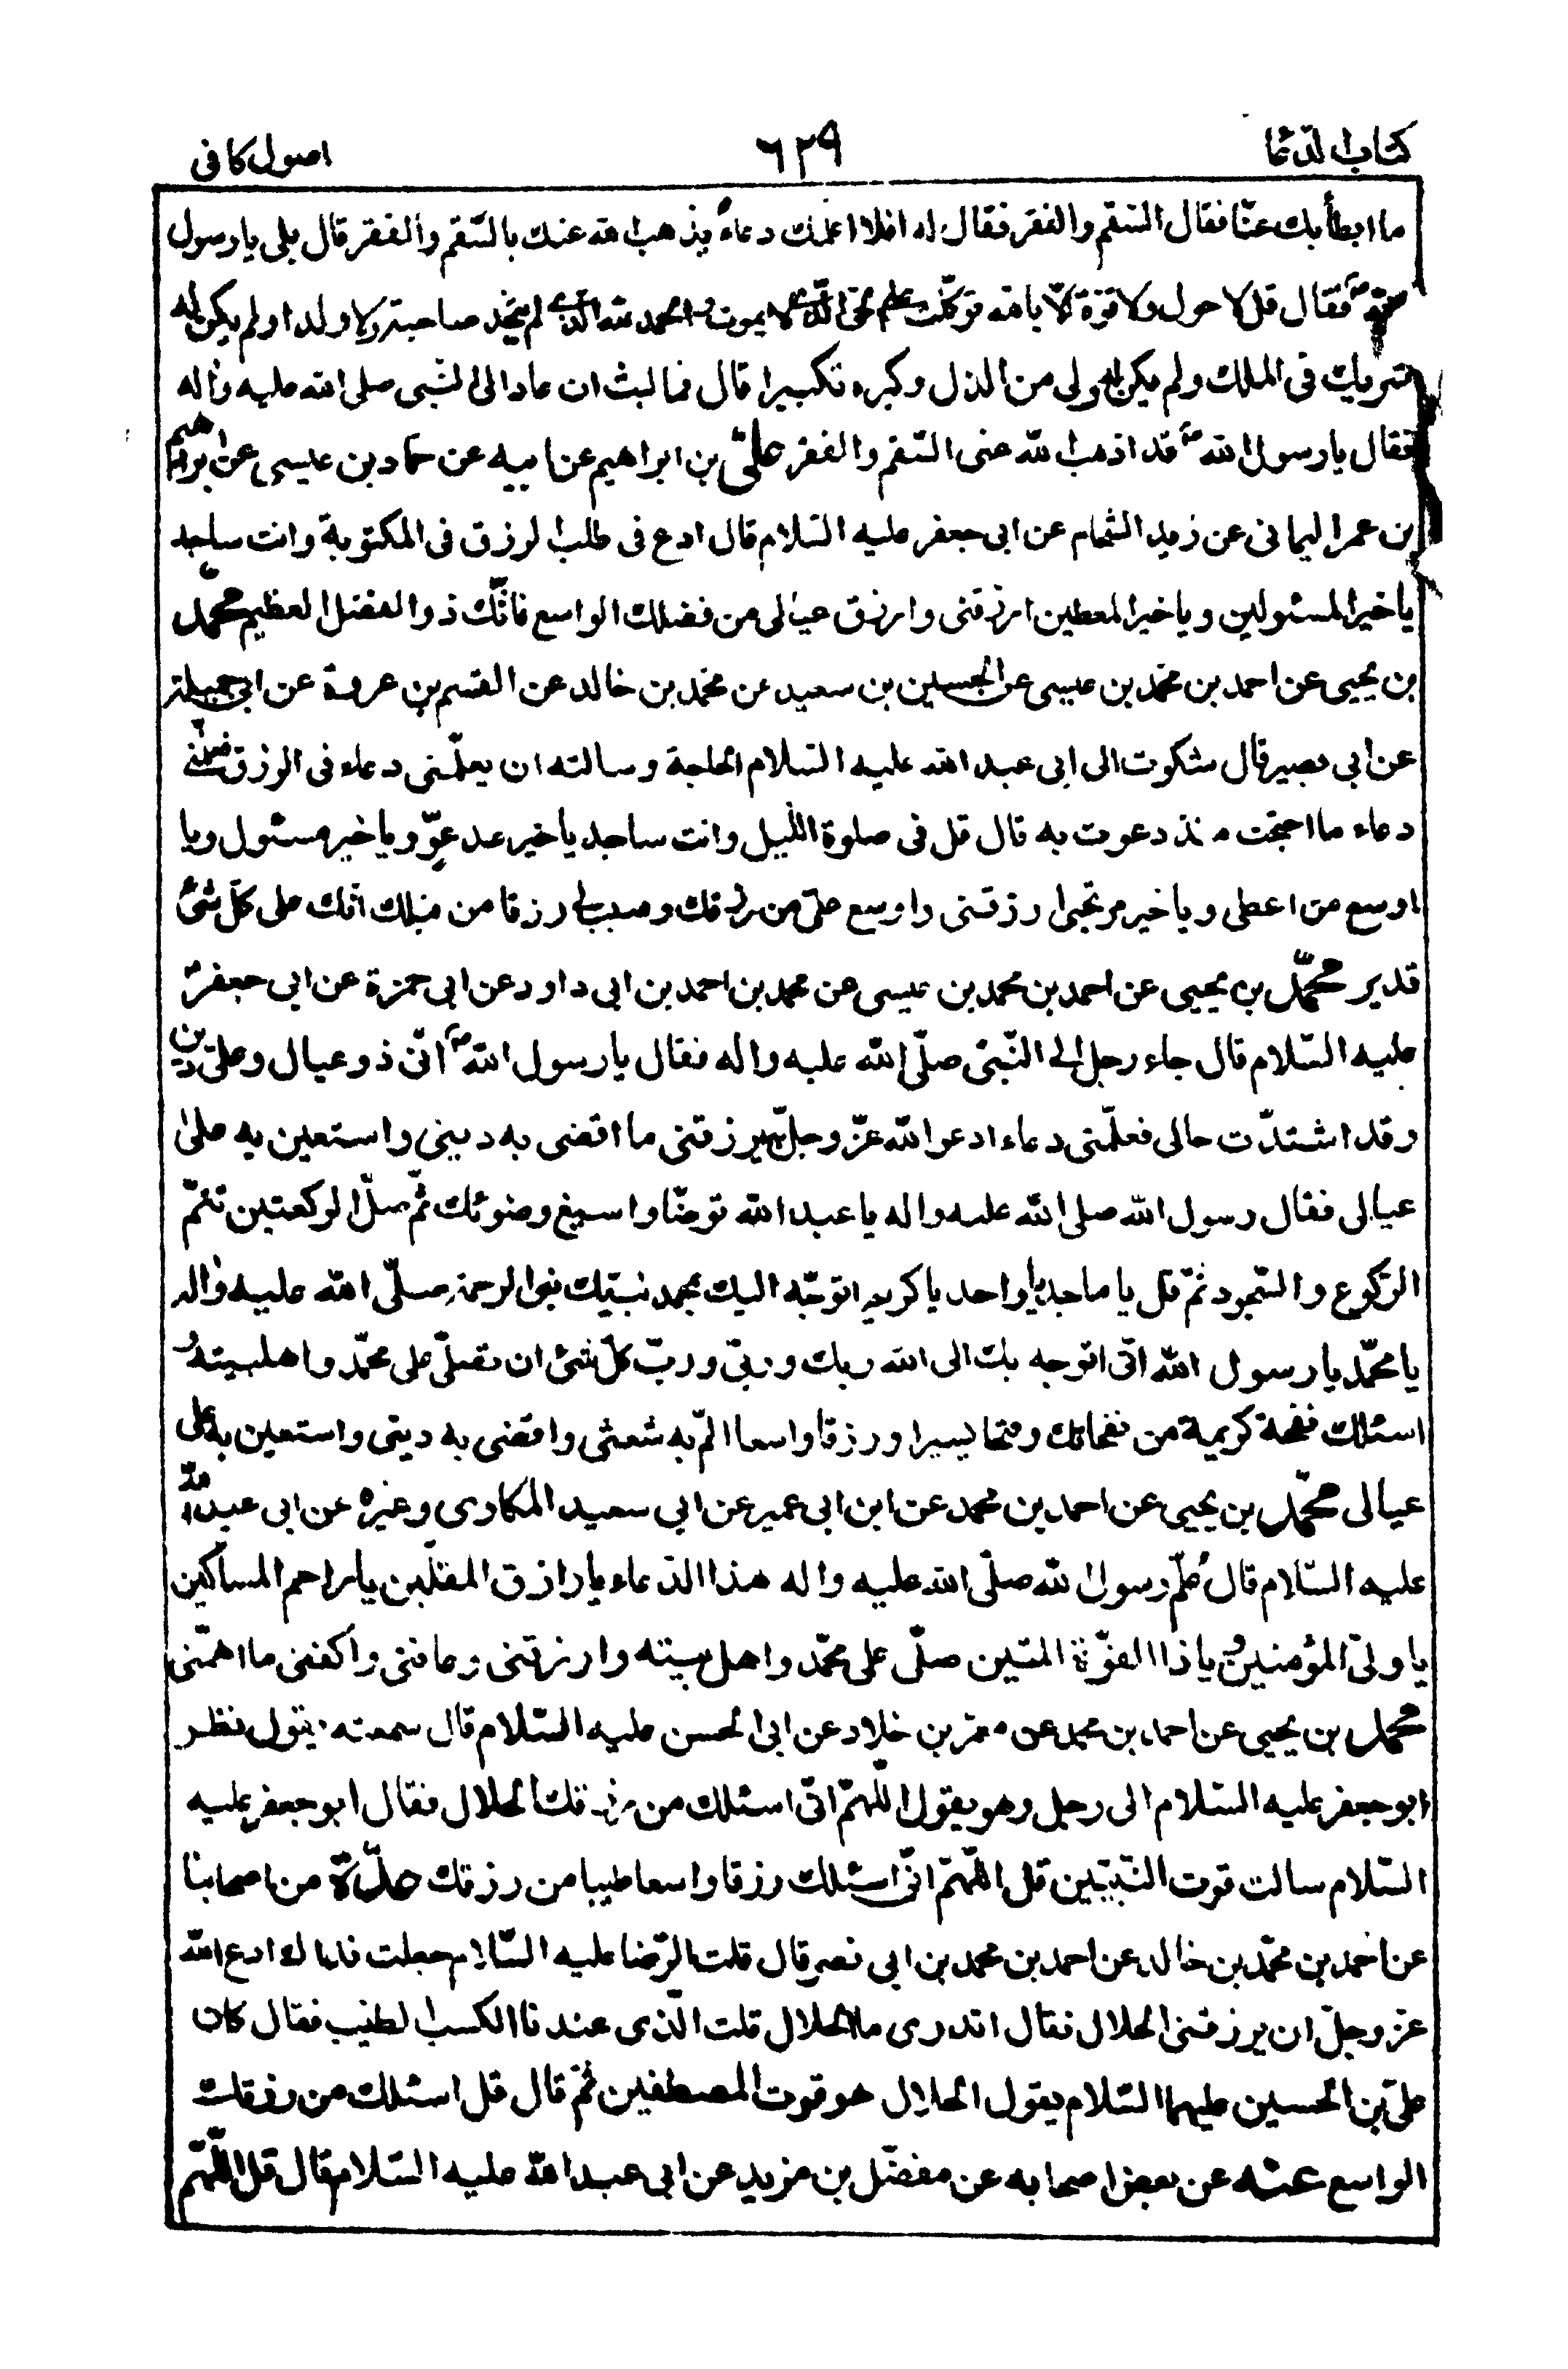 كتاب الدعا
٦٢٩
اصول كافى
ما ابطأ بك عنّا فقال السّقم والفقر فقال له افلا اعلمك دعاء يذهب الله عنك بالسّقم والفقر قال بلى يا رسول
الله ص فقال قل لا حول ولا قوّة الّا بالله توكّلت على الحىّ الّذى لا يموت والحمد لله الّذى لم يتّخذ صاحبة ولا ولدا ولم يكن له
شريك فى الملك ولم يكن له ولى من الذل وكبره تكبيرا قال فما لبث ان عاد الى النّبى صلى الله عليه واله
فقال يا رسول الله ص قد اذهب الله عنى السّقم والفقر علىّ بن ابراهيم عن ابيه عن حماد بن عيسى عن ابراهيم
بن عمر اليمانى عن زيد الشّحام عن ابى جعفر عليه السّلام قال ادع فى طلب الرزق فى المكتوبة وانت ساجد
يا خير المسئولين ويا خير المعطين ارزقنى وارزق عيالى من فضلك الواسع فانّك ذو الفضل العظيم محمّد
بن يحيى عن احمد بن محمّد بن عيسى عن الحسين بن سعيد عن محمّد بن خالد عن القسم بن عروة عن ابى جميلة
عن ابى بصير قال شكوت الى ابى عبد الله عليه السّلام الحاجة وسالته ان يعلّمنى دعاء فى الرزق فعلّمنى
دعاء ما احتجت منذ دعوت به قال قل فى صلوة اللّيل وانت ساجد يا خير مدعوّ ويا خير مسئول ويا
اوسع من اعطى ويا خير مرتجى ارزقنى واوسع علىّ من رزقك وسبب لى رزقا من قبلك انّك على كلّ شئ
قدير محمّد بن يحيى عن احمد بن محمد بن عيسى عن محمد بن احمد بن ابى داود عن ابى حمزة عن ابى جعفر
عليه السّلام قال جاء رجل الى النّبىّ صلّى الله عليه واله فقال يا رسول الله ص انّى ذو عيال وعلىّ دين
وقد اشتدّت حالى فعلّمنى دعاء ادعو الله عزّ وجلّ به يرزقنى ما اقضى به دينى واستعين به على
عيالى فقال رسول الله صلى الله عليه واله يا عبد الله توضّا واسبغ وضوئك ثمّ صلّ الركعتين تتمّ
الرّكوع والسّجود ثمّ قل يا ماجد يا واحد يا كريم اتوجّه اليك بمحمد نبيّك نبى الرحمة صلّى الله عليه واله
يا محمّد يا رسول الله انّى اتوجه بك الى الله ربك وربّى وربّ كلّ شئ ان تصلّى على محمّد واهل بيته و
اسئلك نفحة كريمة من نفحاتك وفتحا يسيرا ورزقا واسعا المّ به شعثى واقضى به دينى واستعين به على
عيالى محمّد بن يحيى عن احمد بن محمد عن ابن ابى عمير عن ابى سعيد المكارى وغيره عن ابى عبد الله
عليه السّلام قال علّم رسول الله صلّى الله عليه واله هذا الدّعاء يا رازق المقلّين يا راحم المساكين
يا ولىّ المؤمنين يا ذا القوّة المتين صلّى على محمّد واهل بيته وارزقنى وعافنى واكفنى ما اهمّنى
محمد بن يحيى عن احمد بن محمد عن معمّر بن خلاد عن ابى الحسن عليه السّلام قال سمعته يقول نظر
ابو جعفر عليه السّلام الى رجل وهو يقول اللّهمّ انّى اسئلك من رزقك الحلال فقال ابو جعفر عليه
السّلام سالت قوت النّبيّين قل اللّهمّ انّى اسئلك رزقا واسعا طيبا من رزقك عدّة من اصحابنا
عن احمد بن محمّد بن خالد عن احمد بن محمد بن ابى نصر قال قلت للرّضا عليه السّلام جعلت فداك ادع الله
عزّ وجلّ ان يرزقنى الحلال فقال اتدرى ما الحلال قلت الّذى عندنا الكسب الطيّب فقال كان
علىّ بن الحسين عليهما السّلام يقول الحلال هو قوت المصطفين ثمّ قال قل اسئلك من رزقك
الواسع عنه عن بعض اصحابه عن مفضّل بن مزيد عن ابى عبد الله عليه السّلام قال قل اللّهمّ